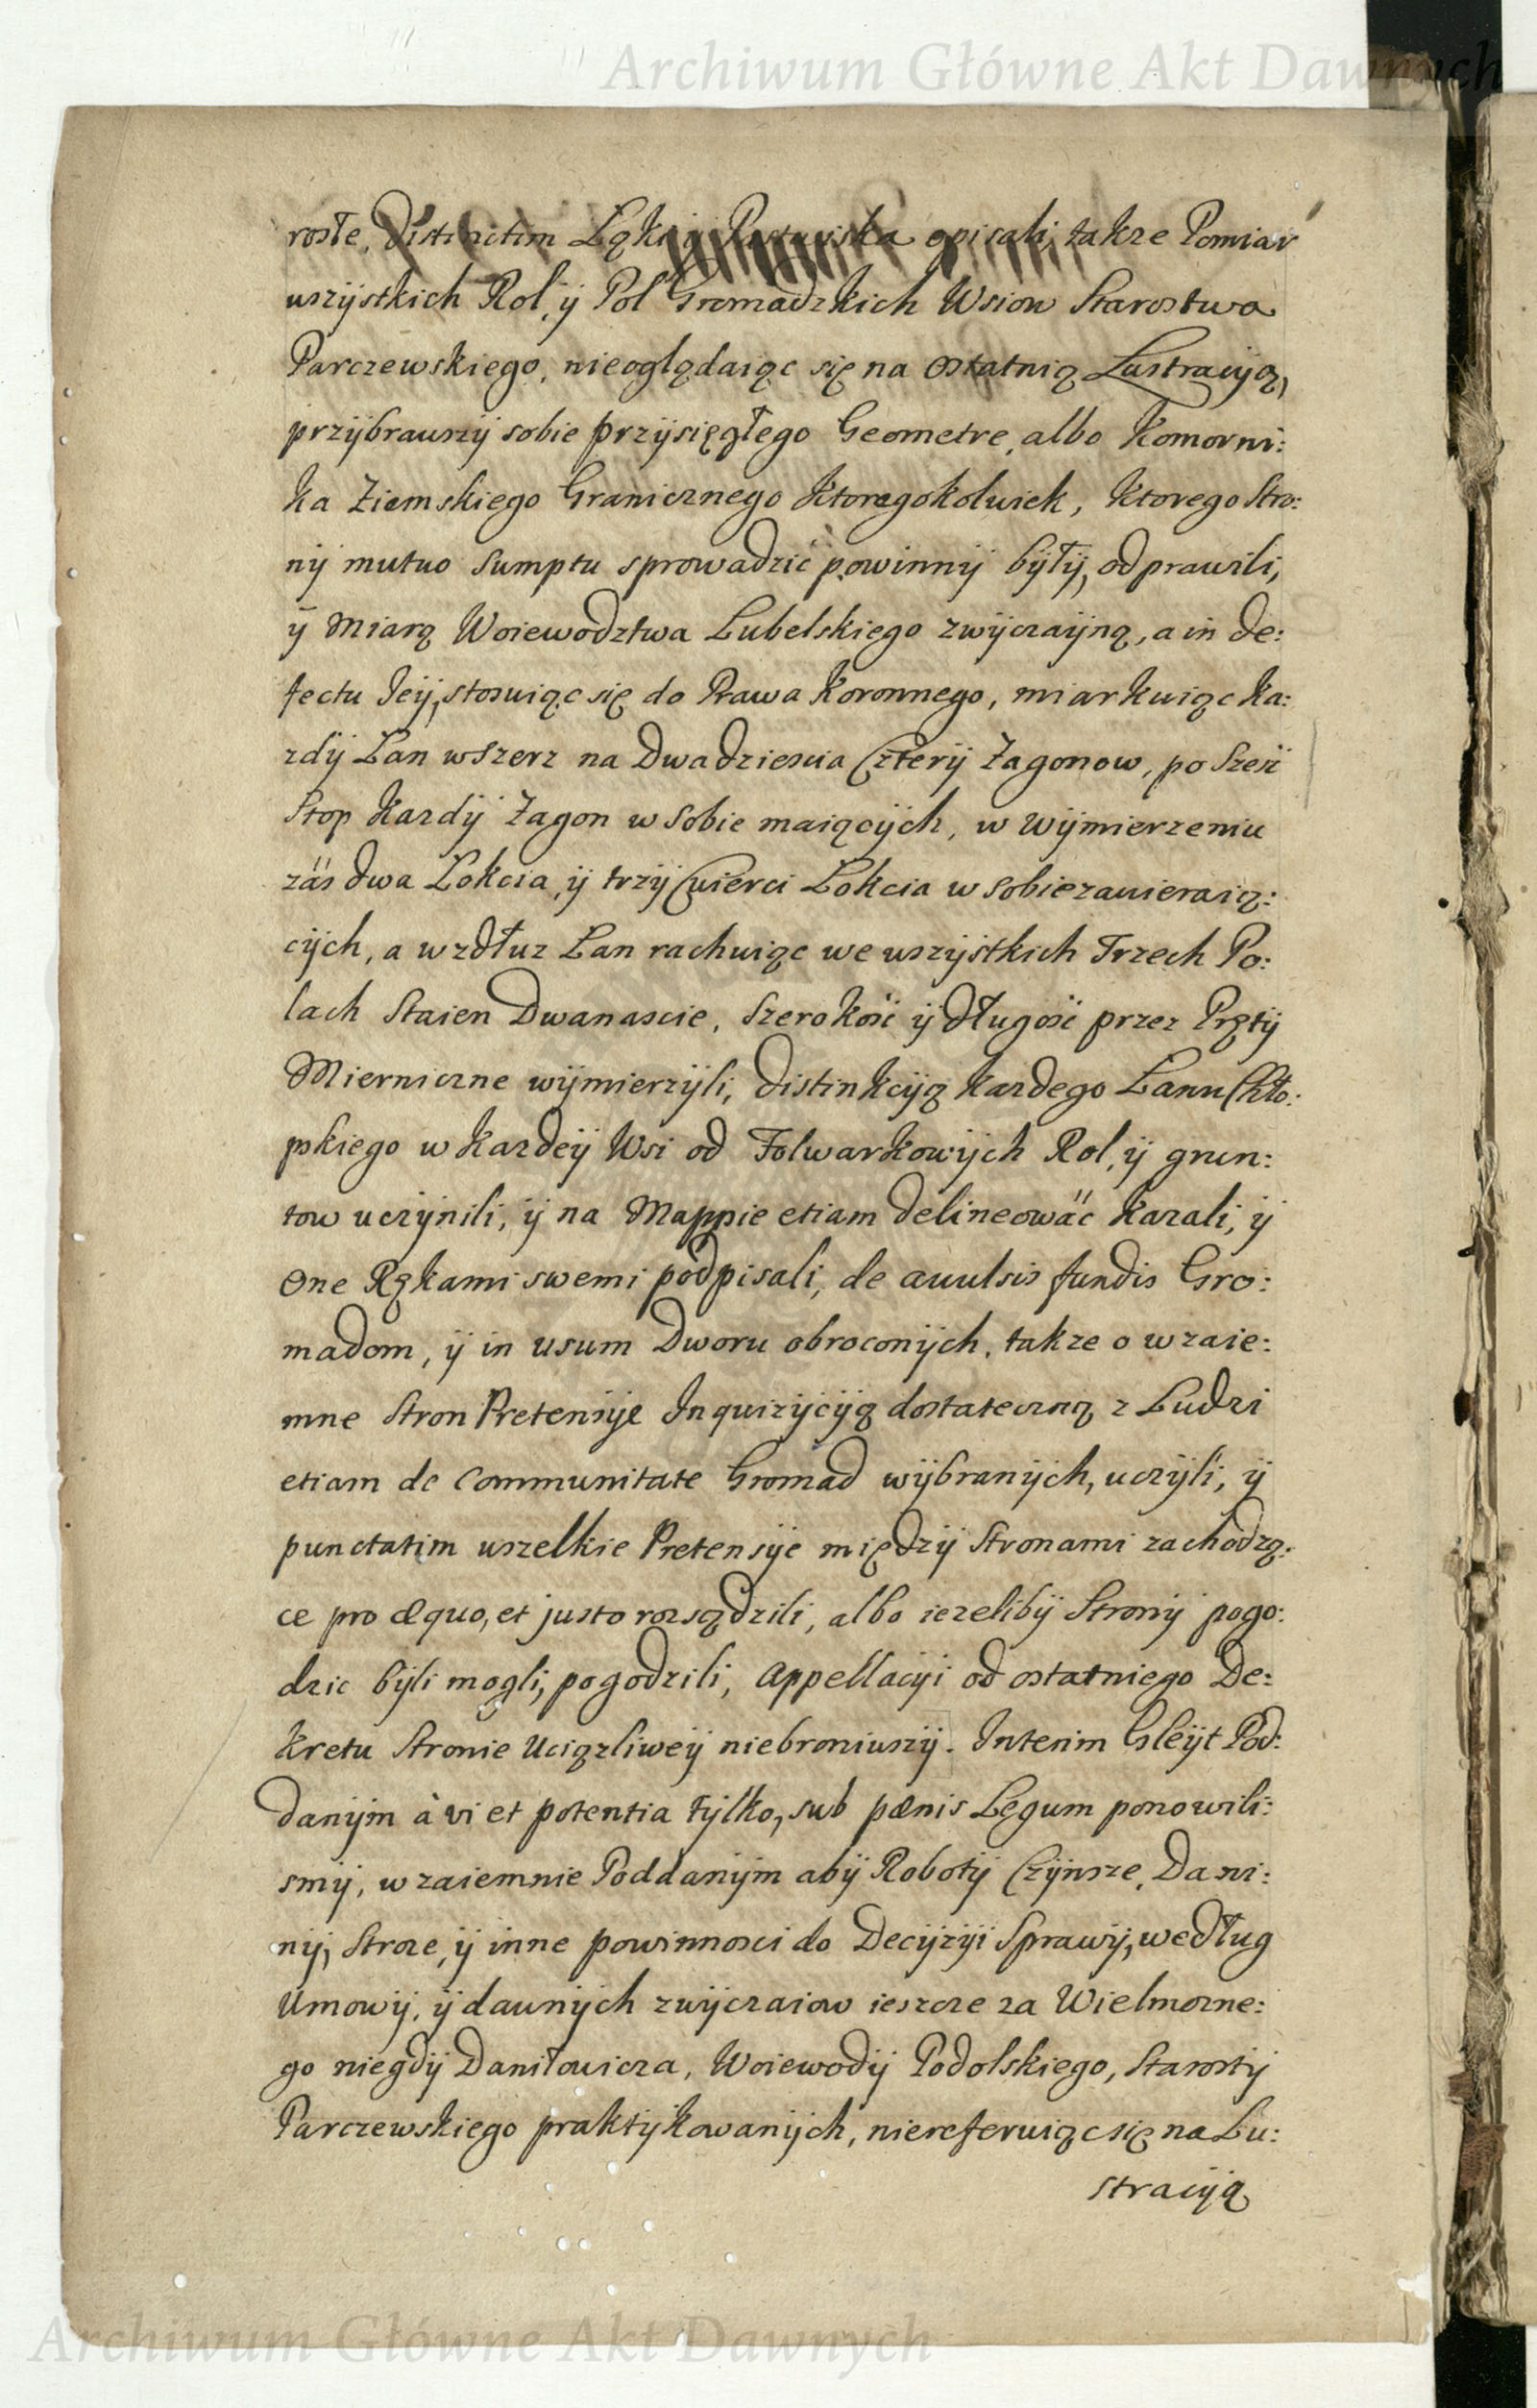 Archiwum Główne Akt Dawnych
rosłe, Distinctim Ląki, ÿ Pastwiska opisali, takze Pomiar
wszÿstkich Rol, ÿ Pol Gromadzkich Wsiow Starostwa
Parczewskiego, nieoglądaiąc się na ostatnią Lustracÿą,
przÿbrawszÿ sobie przÿsięgłego Geometre, albo Komorni:
ka Ziemskiego Granicznego ktoregokolwiek, ktorego Stro:
nÿ mutuo Sumptu sprowadzić powinnÿ bÿłÿ, odprawili,
ÿ Miarą Woiewodztwa Lubelskiego zwÿczaÿną, a in de:
fectu Jeÿ, stosuiąc się do Prawa Koronnego, miarkuiąc ka:
zdÿ Łan wszerz na Dwadziescia Czterÿ Zagonow, po Szesć
Stop kazdÿ Zagon w Sobie maiącÿch, w wÿmierzeniu
zaś dwa Łokcia, ÿ trzÿ Cwierci Łokcia w Sobie zawieraią:
cÿch, a wzdłuz Łan rachuiąc we wszÿstkich Trzech Po:
lach Staien Dwanascie, Szerokość ÿ długość przez Prętÿ
Miernicze wÿmierzÿli, distinkcÿą kazdego Łanu Chło:
pskiego w kazdeÿ Wsi od Folwarkowÿch Rol, ÿ grun:
tow uczÿnili, ÿ na Mappie etiam delineowäć kazali, ÿ
one Rękami swemi podpisali, de avulsis fundis Gro:
madom, ÿ in usum Dworu obroconÿch, takze o wzaie:
mne Stron Pretensÿe Inquizÿcÿą dostateczną z Ludzi
etiam de Communitate Gromad wÿbranÿch, uczÿli, ÿ
punctatim wszelkie Pretensÿe międzÿ Stronami zachodzą:
ce pro æquo, et justo rozsądzili, albo iezelibÿ Stronÿ pogo:
dzic bÿli mogli, pogodzili, Appellacÿi od ostatniego De:
kretu Stronie Uciązliweÿ niebroniwszÿ. Interim Gleÿt Pod:
danÿm à vi et potentia tÿlko, sub pœnis Legum ponowili:
smÿ, wzaiemnie Poddanÿm abÿ Robotÿ Czÿnsze, Dani:
nÿ, Stroze, ÿ inne powinnosci do Decÿzÿi Sprawÿ, według
Umowÿ, ÿ dawnÿch zwÿczaiow ieszcze za Wielmozne:
go niegdÿ Daniłowicza, Woiewodÿ Podolskiego, Starostÿ
Parczewskiego praktÿkowanÿch, niereferuiąc się na Lu:
stracÿą
Archiwum Główne Akt Dawnych